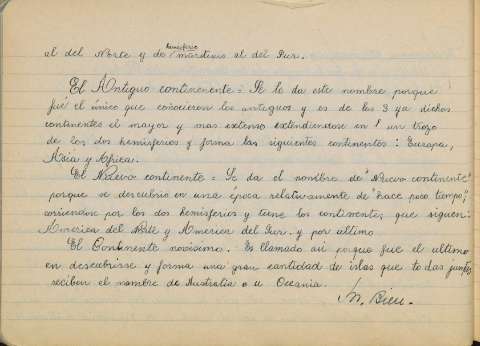 al del Norte y de hemisferio marítimo al del Sur.
El Antiguo continente = Se le da este nombre porque
fué el único que conocieron los antiguos y es de los 3 ya dichos
continentes el mayor y mas extenso extendiendose en un trozo
de los dos hemisferios y forma las siguientes continentes: Europa,
Asia y Africa.
El Nuevo continente = Se da el nombre de "Nuevo continente"
porque se descubrio en una época relativamente de "hace poco tiempo",
por los dos hemisferios y tiene los continentes que siguen:
America del Norte y America del Sur. y por ultimo
El Continente novísimo. Es llamado asi porque fue el ultimo
en descubrirse y forma una gran cantidad de islas que todas juntas
reciben el nombre de Australia o u Oceania.
M. Bieu.